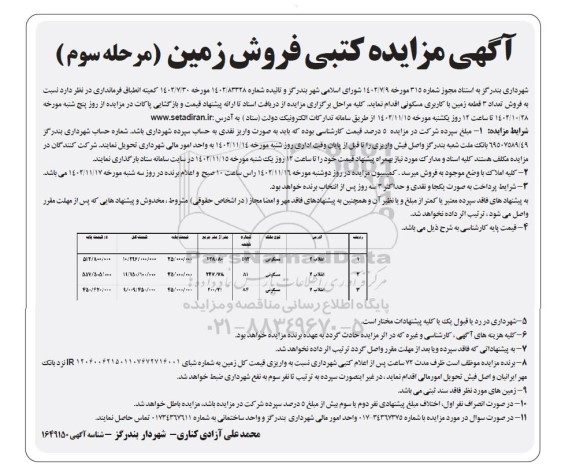 آگهی مزایده کتبی فروش زمین (مرحله سوم)
شهرداری بندرگز به استناد مجوز شماره ۳۱۵ مورخه ۱۴۰۲/۷/۹ شورای اسلامی شهر بندرگز و تائیده شماره ۱۴۰۲/۸۳۳۲۸ مورخه ۱۴۰۲/۷/۳۰ کمیته انطباق فرمانداری در نظر دارد نسبت
به فروش تعداد ۳ قطعه زمین با کاربری مسکونی اقدام نماید. کلیه مراحل برگزاری مزایده از دریافت اسناد تا ارائه پیشنهاد قیمت و بازگشایی پاکات در مزایده از روز پنج شنبه مورخه
۱۴۰۲/۱۰/۲۸ تا ساعت ۱۲ روز یکشنبه مورخه ۱۴۰۲/۱۱/۱۵ از طریق سامانه تدارکات الکترونیک دولت (ستاد) به آدرس: www.setadiran.ir
شرایط مزایده: ۱- مبلغ سپرده شرکت در مزایده ۵ درصد قیمت کارشناسی بوده که باید به صورت واریز نقدی به حساب سپرده شهرداری باشد. شماره حساب شهرداری بندرگز
۶۹۵۰۷۵۸۹/۴۹ بانک ملت شعبه بندرگز واصل فیش واریزی را تا قبل از پایان وقت اداری روز شنبه مورخه ۱۴۰۲/۱۱/۱۴ به واحد امور مالی شهرداری تحویل نمایند. شرکت کنندگان در
مزایده مکلف هستند کلیه اسناد و مدارکت مورد نیاز بهمراه پیشنهاد قیمت خود را تا ساعت ۱۲ روز یک شنبه مورخه ۱۴۰۲/۱۱/۱۵ در سایت سامانه ستاد بارگذاری نمایند.
۲- کلیه املاک با وضع موجود به فروش میرسد. کمیسیون مزایده در روز دوشنبه مورخه ۱۴۰۲/۱۱/۱۶ راس ساعت ۱۰ صبح و اعلام برنده در روز سه شنبه مورخه ۱۴۰۲/۱۱/۱۷ می باشد.
۳- شرایط پرداخت به صورت یکجا و نقدی و حداکثر ۳ سه روز پس از انتخاب برنده خواهد بود.
به پیشنهاد های فاقد سپرده معتبر یا کمتر از مبلغ و یا نظیر آن و همچنین به پیشنهادهای فاقد مهر و امضا مجاز (در اشخاص حقوقی) مشروط، مخدوش و پیشنهاد هایی که پس از مهلت مقرر
واصل می شود، ترتیب اثر داده نخواهد شد.
۴- قیمت پایه کارشناسی به شرح ذیل می باشد.
ردیف آدرس نوع ملک شماره قطعه متراژ متر مربع قیمت پایه قیمت کل ۵ درصد قیمت پایه
۱ انقلاب ۲ مسکونی
۲ انقلاب ۲ مسکونی ۸۱
۳ انقلاب ۲ مسکونی ۸۲
پایگاه اطلاع رسانی مناقصه و مزایده
۰۲۱-۸۸۳۴۹۶۷۰-۵
۵- شهرداری در رد یا قبول یک یا کلیه پیشنهادات مختار است.
۶- کلیه هزینه های آگهی، کارشناسی و غیره که در اثر مزایده حادث گردد به عهده برنده مزایده خواهد بود.
۷- به پیشنهاداتی که فاقد سپرده ویا بعد از مهلت مقرر واصل گردد ترتیب اثر داده نخواهد شد.
۸- برنده مزایده موظف است ظرف مدت ۷۲ ساعت پس از اعلام کتبی شهرداری نسبت به واریزی قیمت کل زمین به شماره شبای IR ۱۲۰۶۰۰۶۲۱۵۰۱۱۰۷۶۷۲۷۱۶۰۰۱ نزد بانک
مهر ایرانیان و اصل فیش تحویل امورمالی اقدام نماید، در غیر اینصورت سپرده به ترتیب تا نفر سوم به نفع شهرداری ضبط خواهد شد.
۹- زمین های مورد نظر فاقد سند ثبتی می باشد.
۱۰- در صورت انصراف نفر اول، اختلاف مبلغ پیشنهادی نفر دوم یا سوم بیش از مبلغ ۵ درصد سپرده شرکت در مزایده باشد، مزایده باطل خواهد شد.
۱۱- در صورت سوال در مورد مزایده با شماره ۰۱۷۰۳۴۳۶۷۳۷۵ واحد امور مالی شهرداری بندرگز و واحد ساختمانی به شماره ۰۱۷۳۴۳۶۷۶۱۱ تماس حاصل نمایند.
محمدعلی آزادی کناری- شهردار بندرگز - شناسه آگهی ۱۶۴۹۱۵۰